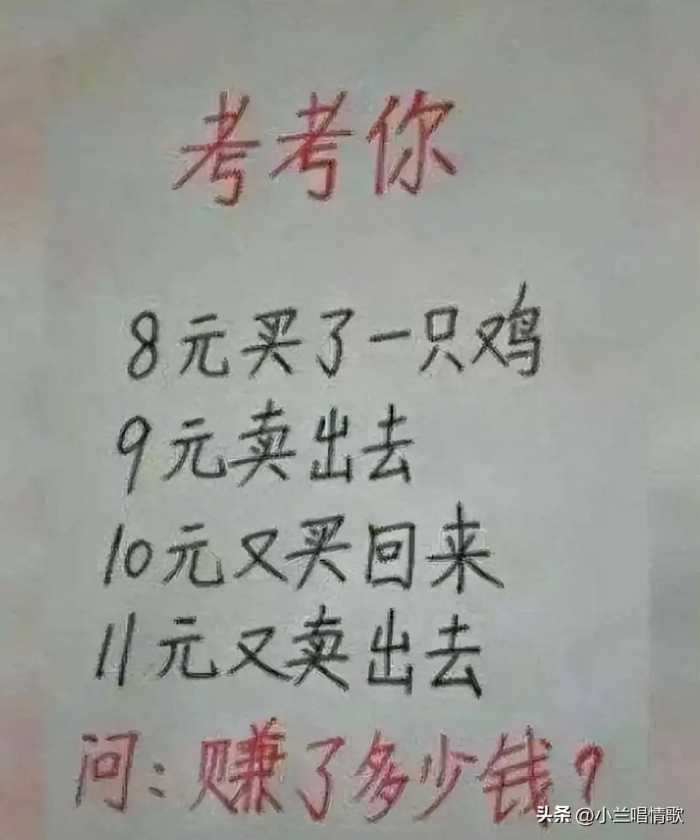 考考你
8元买了一只鸡
9元卖出去
10元又买回来
11元又卖出去
问:赚了多少钱?
头条 @小兰唱情歌